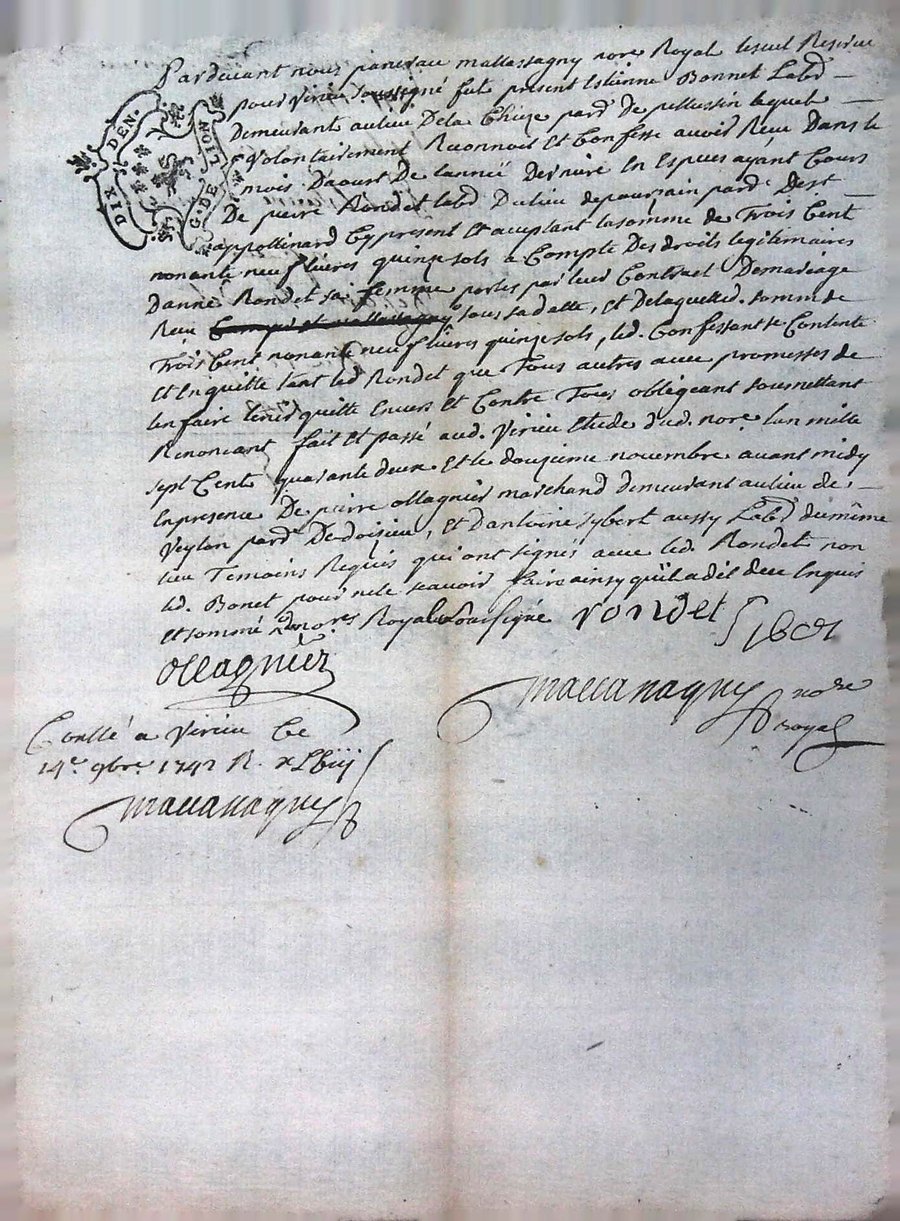 Pardevant nous pancrau mallassagny nore Royal lesul Reservé
pour Virieu soussigné fut présent Estienne Bonnet Labd
DIX DEN.
G. DE LION
Demeurant au lieu De la Chieze pard de pellussin lequel
Volontairement Reconnoit Et Confesse avoir Reçu Dans le
mois Daoust De lannéé Derniere En Especes ayant Cours
De pierre Rondet labd Du lieu de poursain pard Dest
appollinard Cy present et aceptant la somme de Trois Cent
nonante neuf livres quinze sols a Compte Des droits legitimaires
Danne Rondet sa femme portes par leur Contract De mariage
Reçu sous sa datte, et De laquelled. somme de
Trois Cent nonante neuf livres quinze sols, led. Confessant se Contente
Et En quitte tant led Rondet que Tous autres avec promesses de
len faire tenir quitte Envers Et Contre Tous obligeant soumettant
Renoncant fait Et passé aud. Virieu Etude dud. nore. lan mille
sept Cents quarante deux Et le douzieme novembre avant midy
En presence De pierre ollagnier marchand demeurant au lieu de
Veylon pard De doisieu, Et Dantoine sybert aussy Labd du même
lieu Temoins Requis qui ont signés avec led. Rondet non
led. Bonet pour ne le scavoir faire ainsy quil a dit deu Enquis
Et sommé nores Royal soussigné rondet Siber
ollagnier
mallassagny nore
Royal
Contllé a Virieu Ce
14e. 9bre. 1742 R.
mallassagny